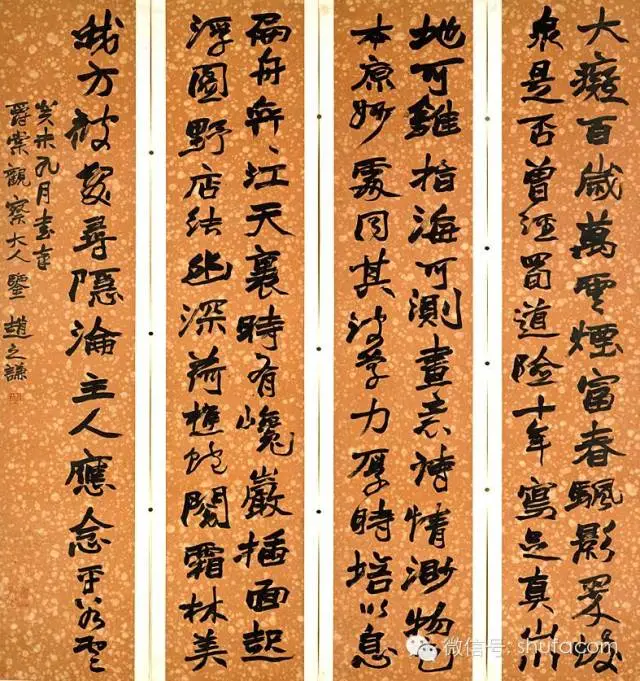 大癡百歲萬雲煙富春颿影
泉是否曾經蜀道險十年寫足真山川
地可雖指海可測畫意詩情渺物色
本原妙處因其學力厚時培以息
扁舟奔江天裏時有巉巖插面起
浮圖野店結幽深荷樵閣霜林美
我方被髮尋隱淪主人應念平
癸未九月書奉
爵棠觀察大人鑒 趙之謙
微信号: shufacom